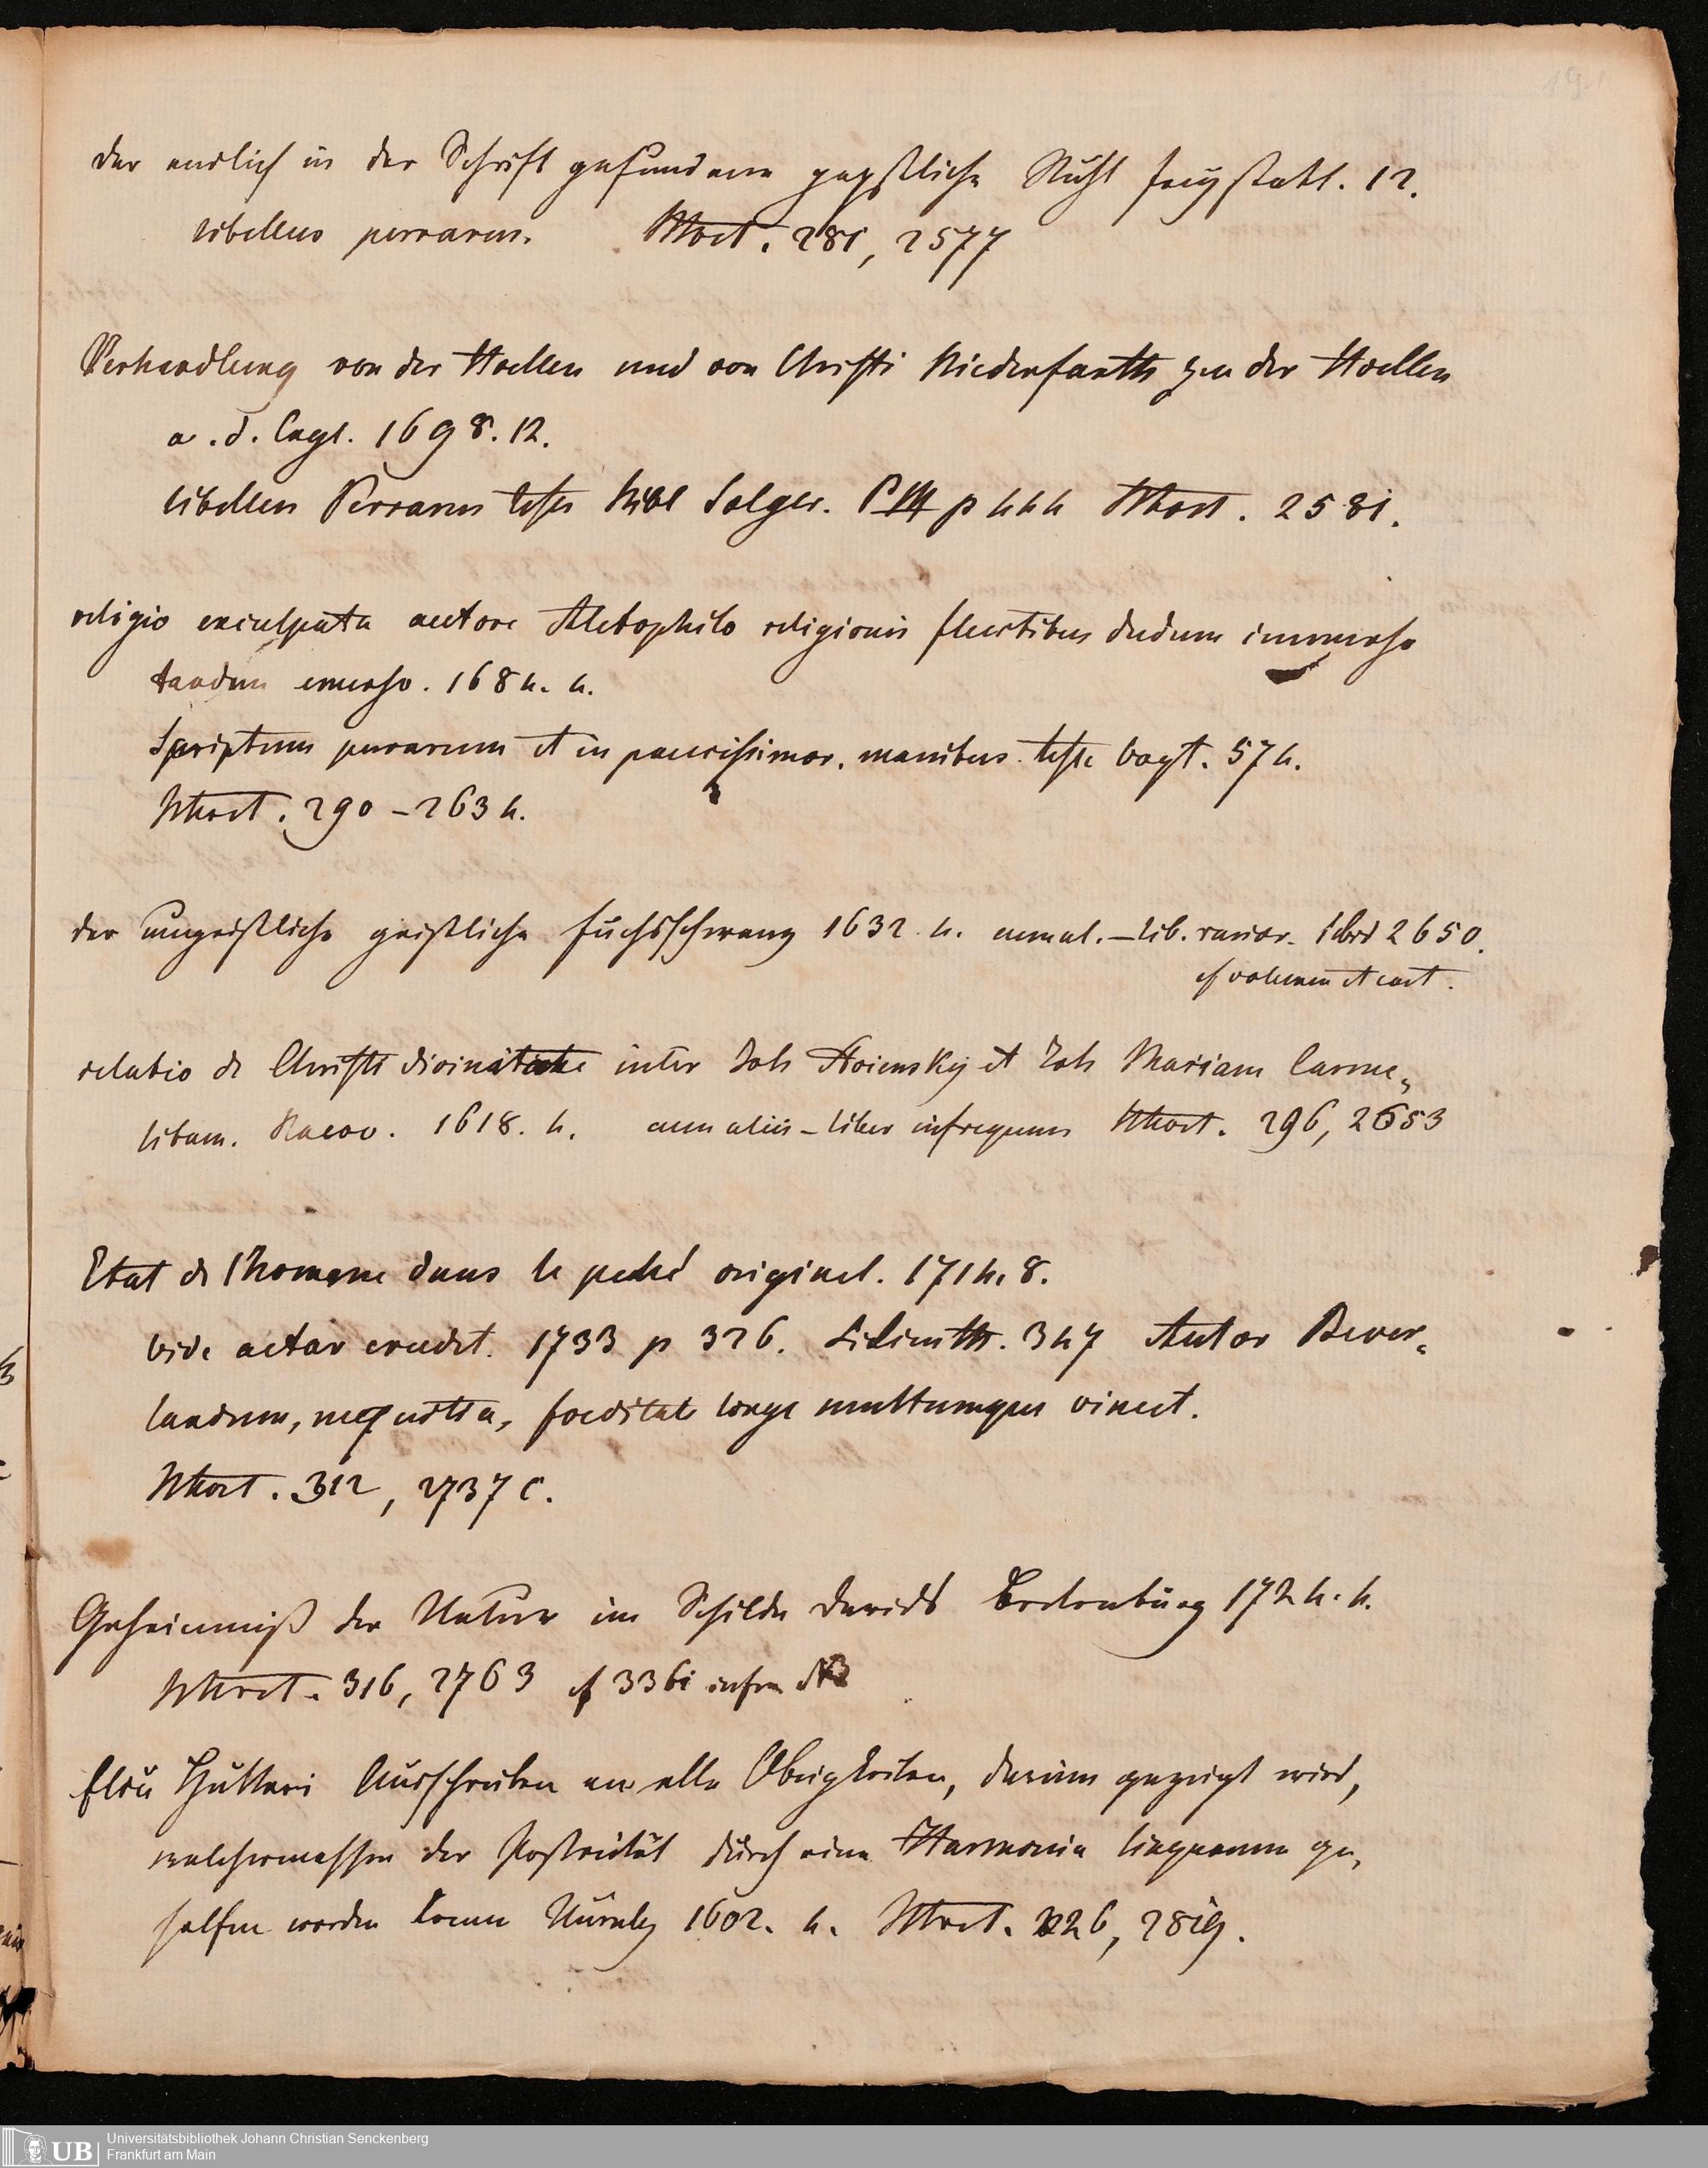 der endlich in der Schrift gefundene paepstliche Stuhl Freystatt. 12.
libellus perrarus. Mart. 281, 2577
Verhandlung von der Hoellen und von Christi Niederfarth zu der Hoellen
a. d. Engl. 1698. 12.
libellus Perrarus teste Bibl Solger. P III p 444 Mart. 2581.
religio exculpata autore Aletophilo religionis fluctibus dudum immerso
tandem emerso. 1684. 4.
Scriptum perrarum et in paucissimor. manibus teste Vogt. 574.
Mart. 290 - 2634.
der ungeistliche geistliche Fuchsschwanz 1632. 4. – Lib. rarior. 2650.
cf
relatio de Christi divinitate inter Joh et Joh Mariam Carme„
litam. Racov. 1618. 4. cum aliis – liber infrequens Mart. 296, 2653
Etat de l'homme dans le peché originel. 1714. 8.
vide actor erudit. 1733 p 326. Lilienth. 347 Autor Bever„
landum, nequitia, foeditate longe multumque vincit.
Mart. 312, 2737 c.
Geheimniß der Natur im Schilde Davids 1724. 4.
Mart. 316, 2763 cf 3361 infra
Eliä Hutteri Ausschreiben an alle Obrigkeiten, darinn gezeigt wird,
welchermassen der Posterität durch eine Harmonia linguarum ge„
holfen werden Nürnbg 1602. 4. Mart. 326, 2819.
Universitätsbibliothek Johann Christian Senckenberg
UB
Frankfurt am Main